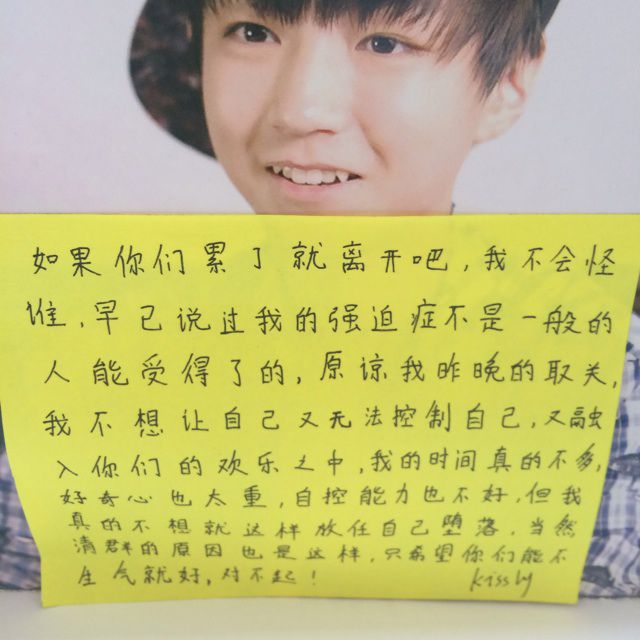 如果你们累了就离开吧,我不会怪
谁,早已说过我的强迫症不是一般的
人能受得了的,原谅我昨晚的取关,
我不想让自己又无法控制自己,又融
入你们的欢乐之中,我的时间真的不多,
好奇心也太重,自控能力也不好,但我
真的不想就这样放任自己堕落,当然
清群的原因也是这样,只希望你们能不
生气就好,对不起!
kissly